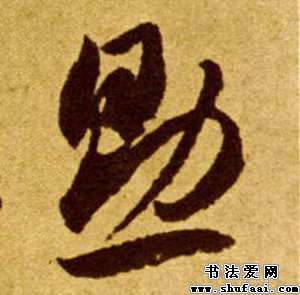 助
书法爱网
www.shufaai.com